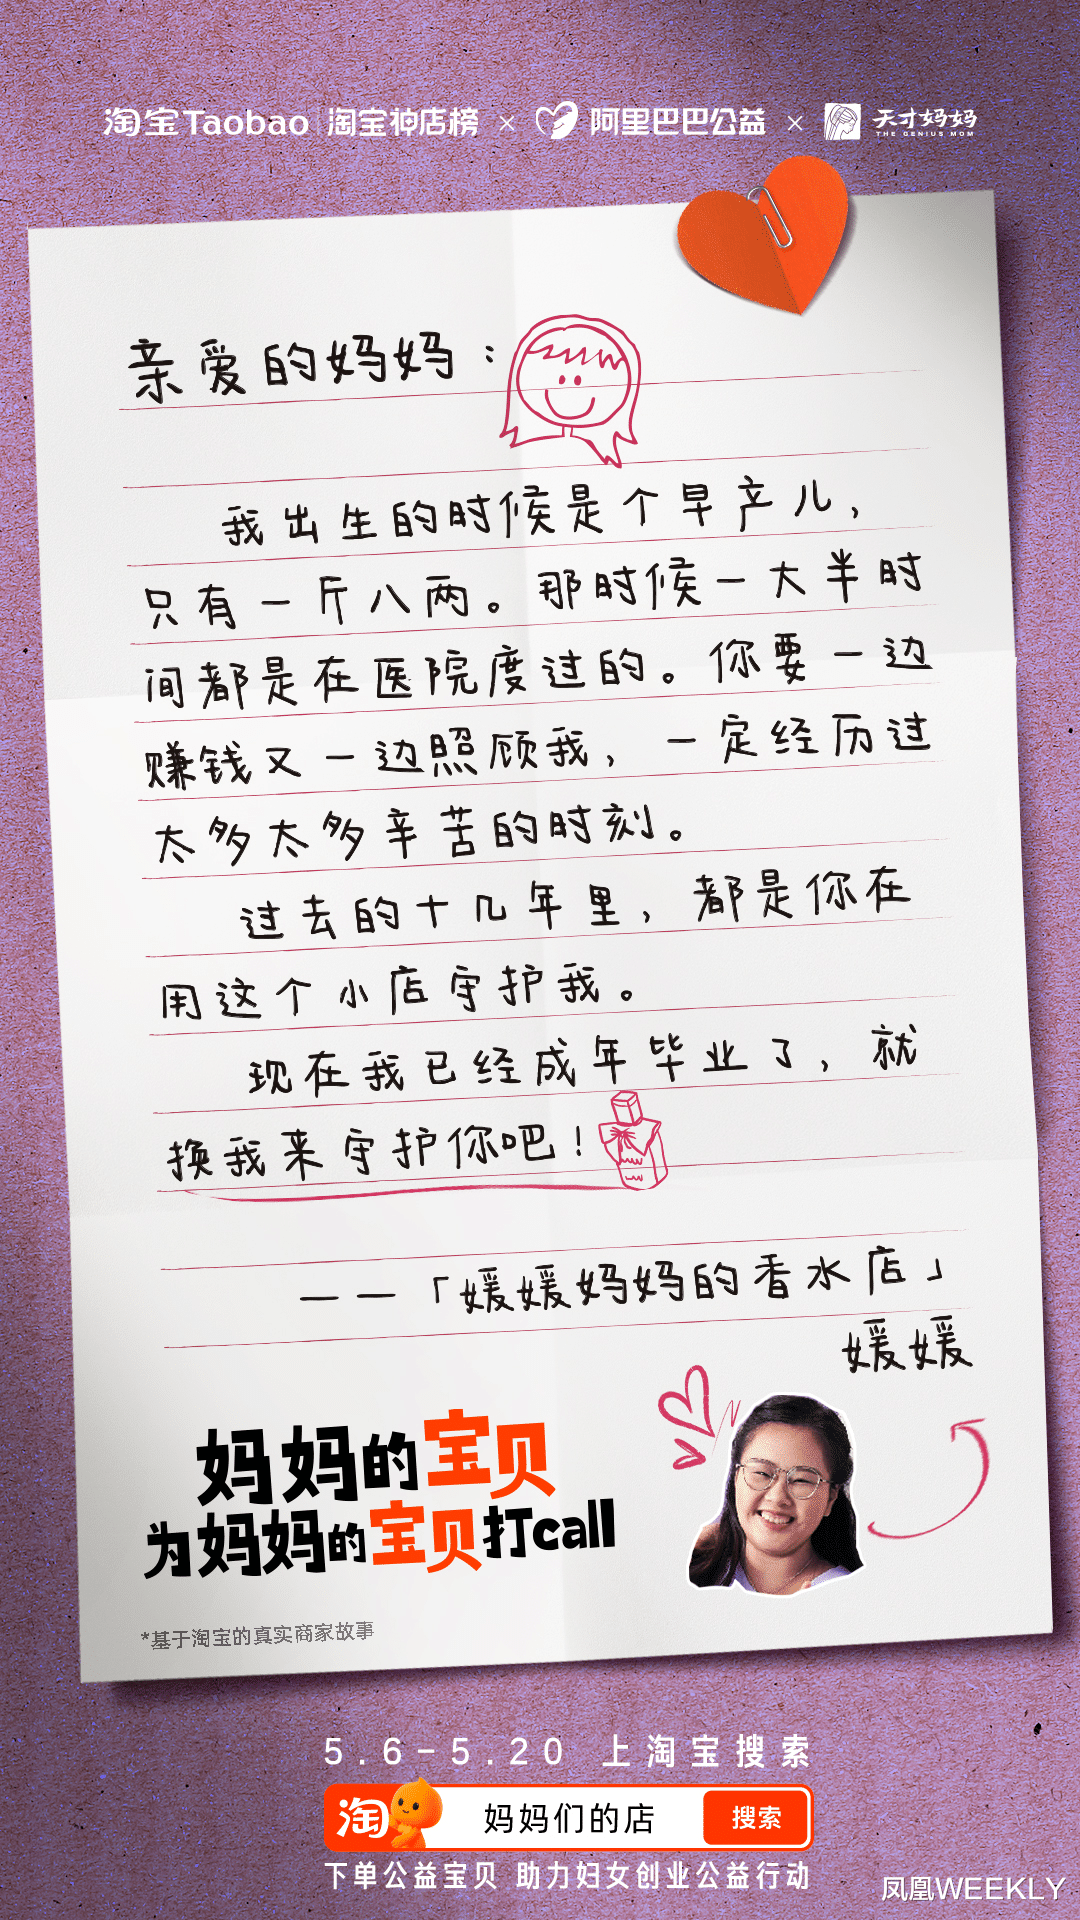 淘宝Taobao | 淘宝神店榜 × 阿里巴巴公益 × 天才妈妈
THE GENIUS MOM
亲爱的妈妈：
我出生的时候是个早产儿，
只有一斤八两。那时候一大半时
间都是在医院度过的。你要一边
赚钱又一边照顾我，一定经历过
太多太多辛苦的时刻。
过去的十几年里，都是你在
用这个小店守护我。
现在我已经成年毕业了，就
换我来守护你吧！
——「媛媛妈妈的香水店」
媛媛
妈妈的宝贝
为妈妈的宝贝打call
*基于淘宝的真实商家故事
5.6-5.20 上淘宝搜索
淘 妈妈们的店 搜索
下单公益宝贝 助力妇女创业公益行动
凤凰WEEKLY